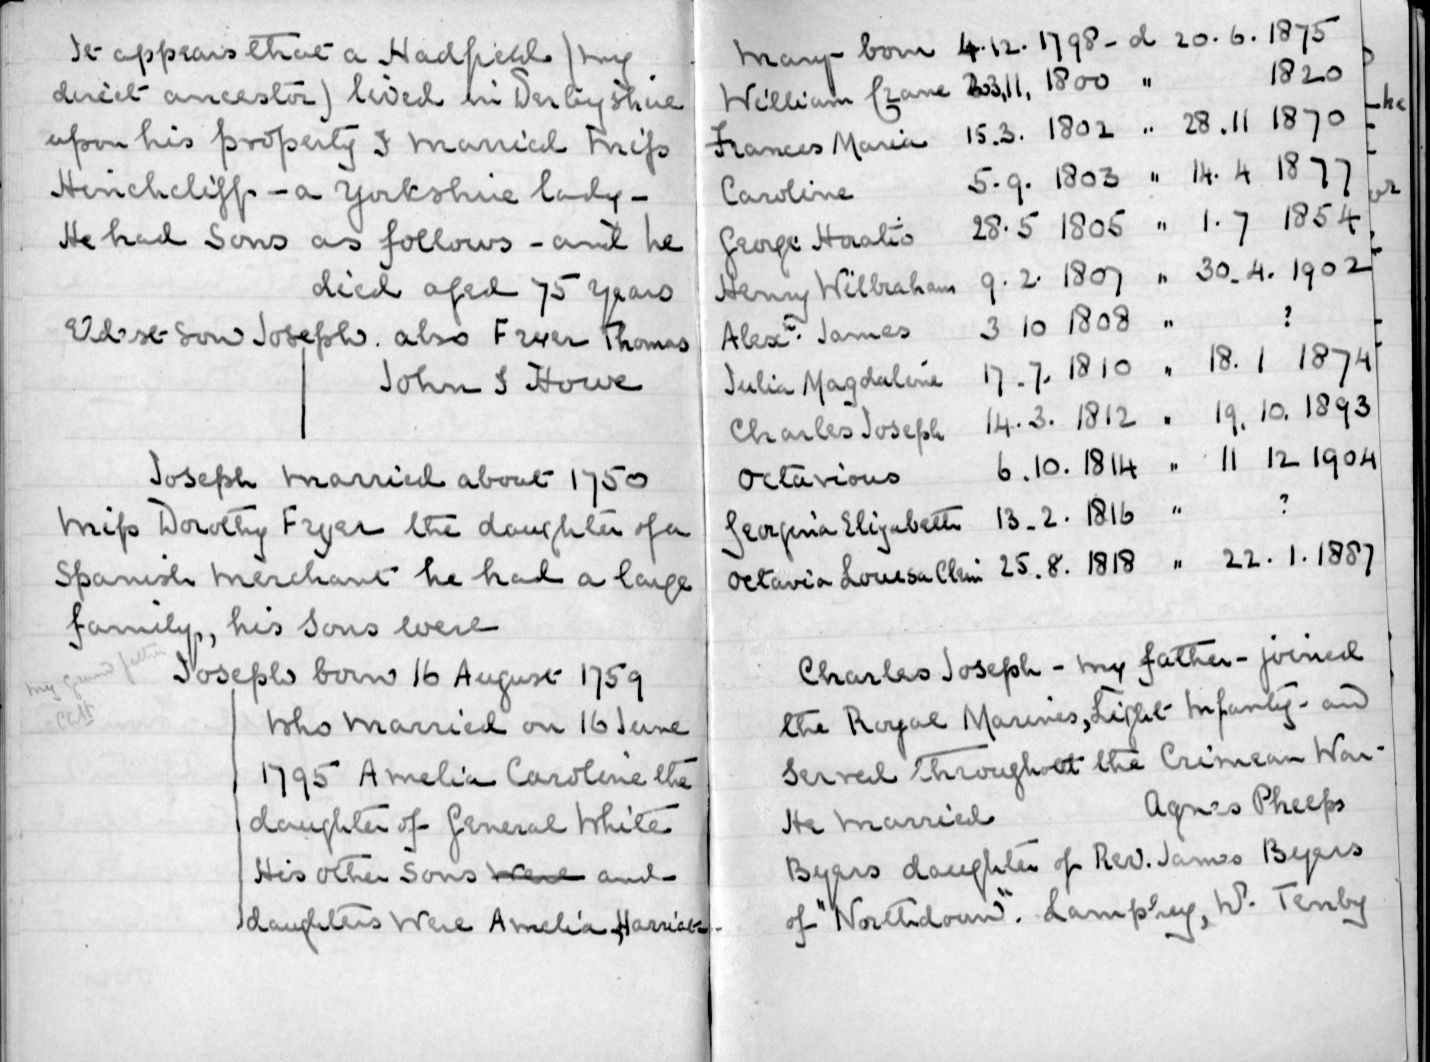 It appears that a Hadfield (my
direct ancestor) lived in Derbyshire
upon his property & married Miss
Hinchcliff - a Yorkshire lady -
He had Sons as follows - and he
died aged 75 years
Eldest Son Joseph. also Fryer Thomas
John & Howe
Joseph married about 1750
Miss Dorothy Fryer the daughter of a
Spanish Merchant he had a large
family, his Sons were
my grand father
Joseph born 16 August 1759
who married on 16 June
1795 Amelia Caroline the
daughter of General White
His other Sons were and
daughters were Amelia, Harriet -
Mary - born 4.12. 1798 - d 20. 6. 1875
William Crane 23,11, 1800 " 1820
Frances Maria 15.3. 1802 " 28.11 1870
Caroline 5.9. 1803 " 14. 4 1877
George Horatio 28.5 1805 " 1. 7 1854
Henry Wilbraham 9. 2. 1807 " 30.4. 1902
Alexr. James 3 10 1808 " ?
Julia Magdalene 17.7. 1810 " 18. 1 1874
Charles Joseph 14.3. 1812 " 19. 10. 1893
Octavious 6.10. 1814 " 11 12 1904
Georgina Elizabeth 13.2. 1816 " ?
Octavia Louesa Clem 25.8. 1818 " 22. 1. 1887
Charles Joseph - my father - joined
the Royal Marines, Light Infanty - and
Served throughout the Crimean War -
He married Agnes Phelps
Byers daughter of Rev. James Byers
of "Northdown". Lamphey, Nr. Tenby